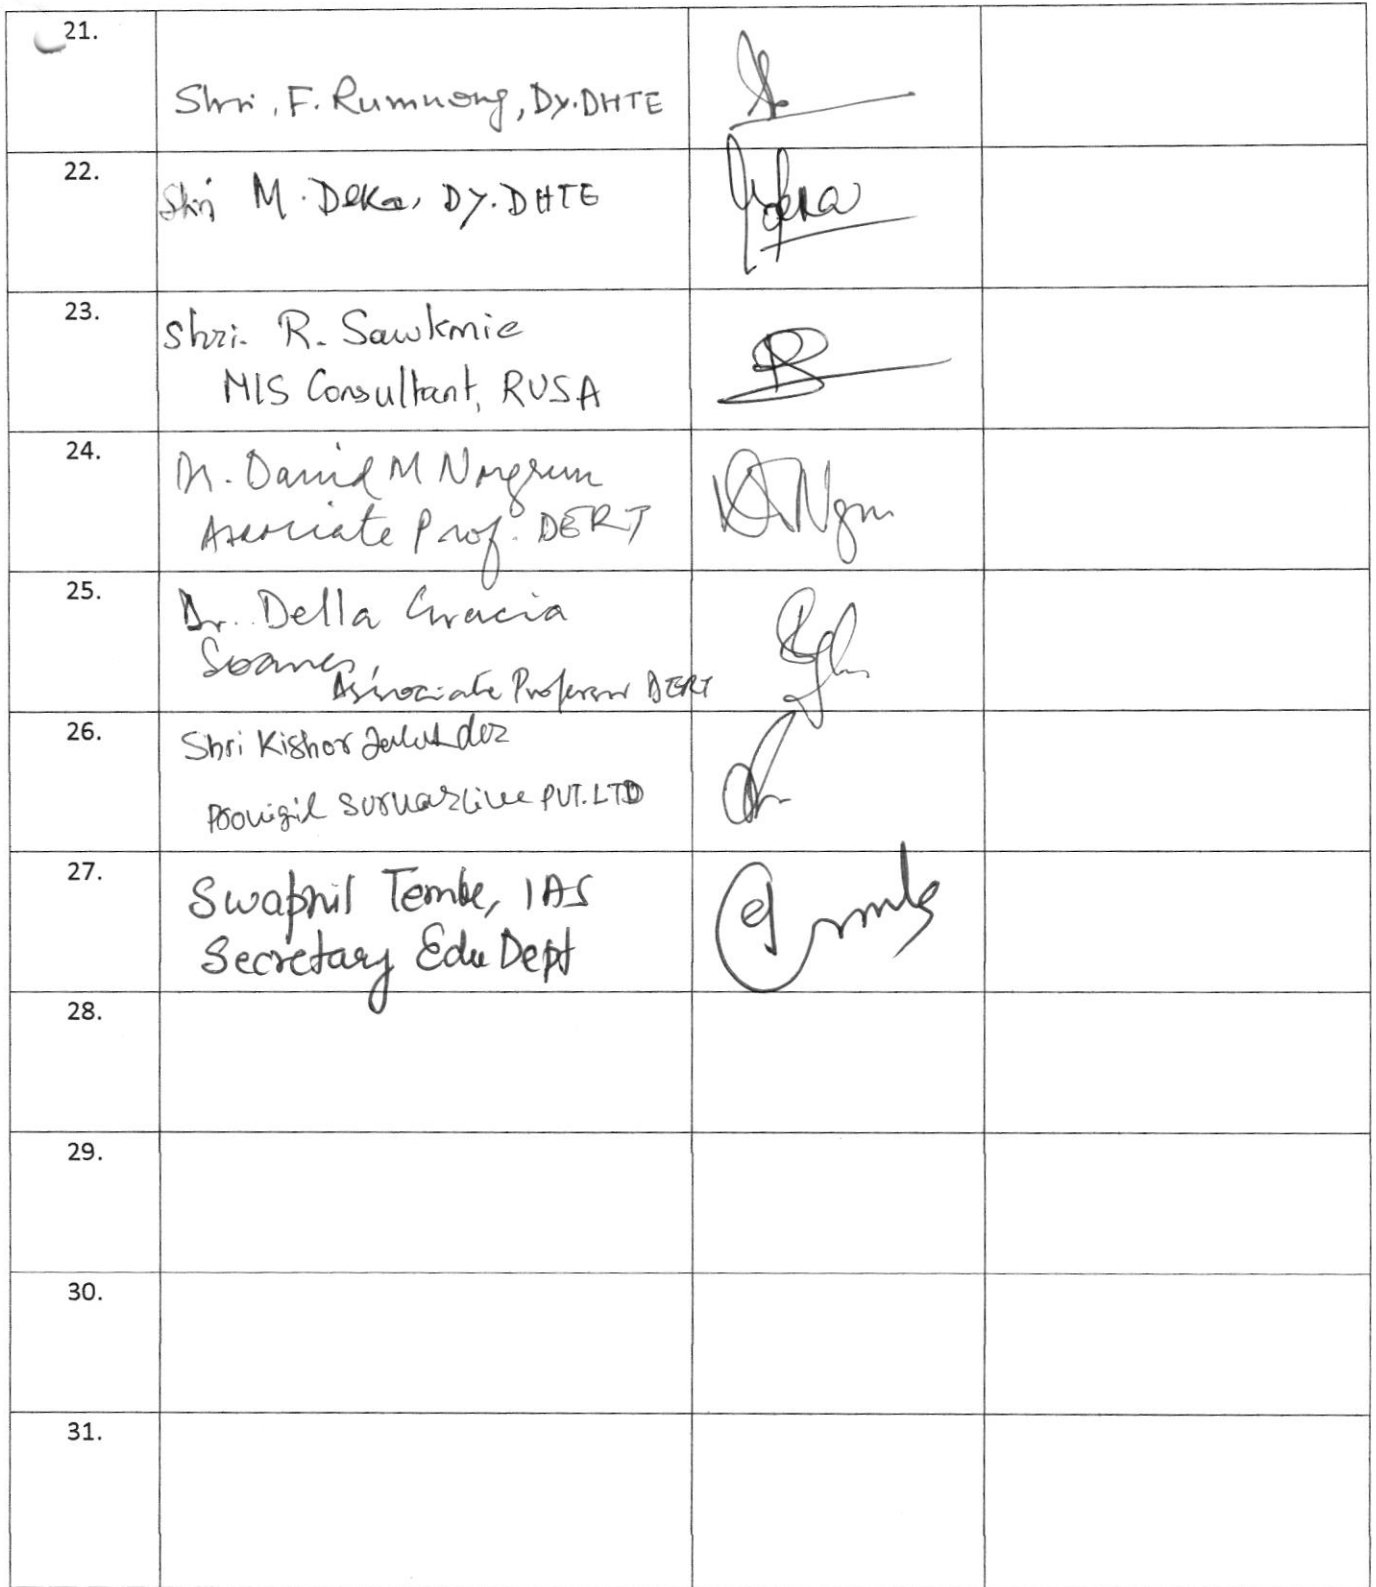 21.
Shri, F. Rumnong, Dy.DHTE
22.
Shri M. Deka, DY.DHTE
23.
Shri. R. Sawkmie
MIS Consultant, RUSA
24.
Dr. David M Nongrum
Associate Prof. DERT
25.
Dr. Della Gracia
Soanes,
Associate Professor DERT
26.
Shri Kishor
PVT. LTD
27.
Swapnil Tembe, IAS
Secretary Edu Dept
28.
29.
30.
31.